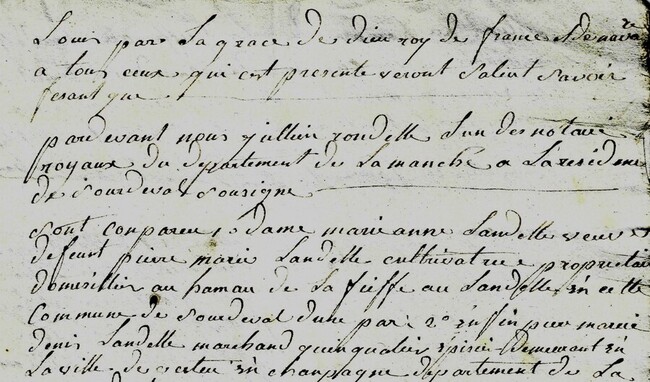 Louis par la grace de dieu roy de france et de navare
a tous ceux qui cest presente veront salut savoir
fesant que
pardevant nous jullien rondelle l'un des notaire
royaux du departement de la manche a la residence
de sourdeval sousigne
sont conpareu 1° dame marianne Landelle veuve
defeunt pierre marie Landelle cultivatrice proprietaire
domicilier au hamau de la fieffe au Landelle en cette
commune de sourdeval dune part 2° enfin pierre marie
denis Landelle marchand quinqualier épicié demeurant en
la ville de vertu en champagne departement de la